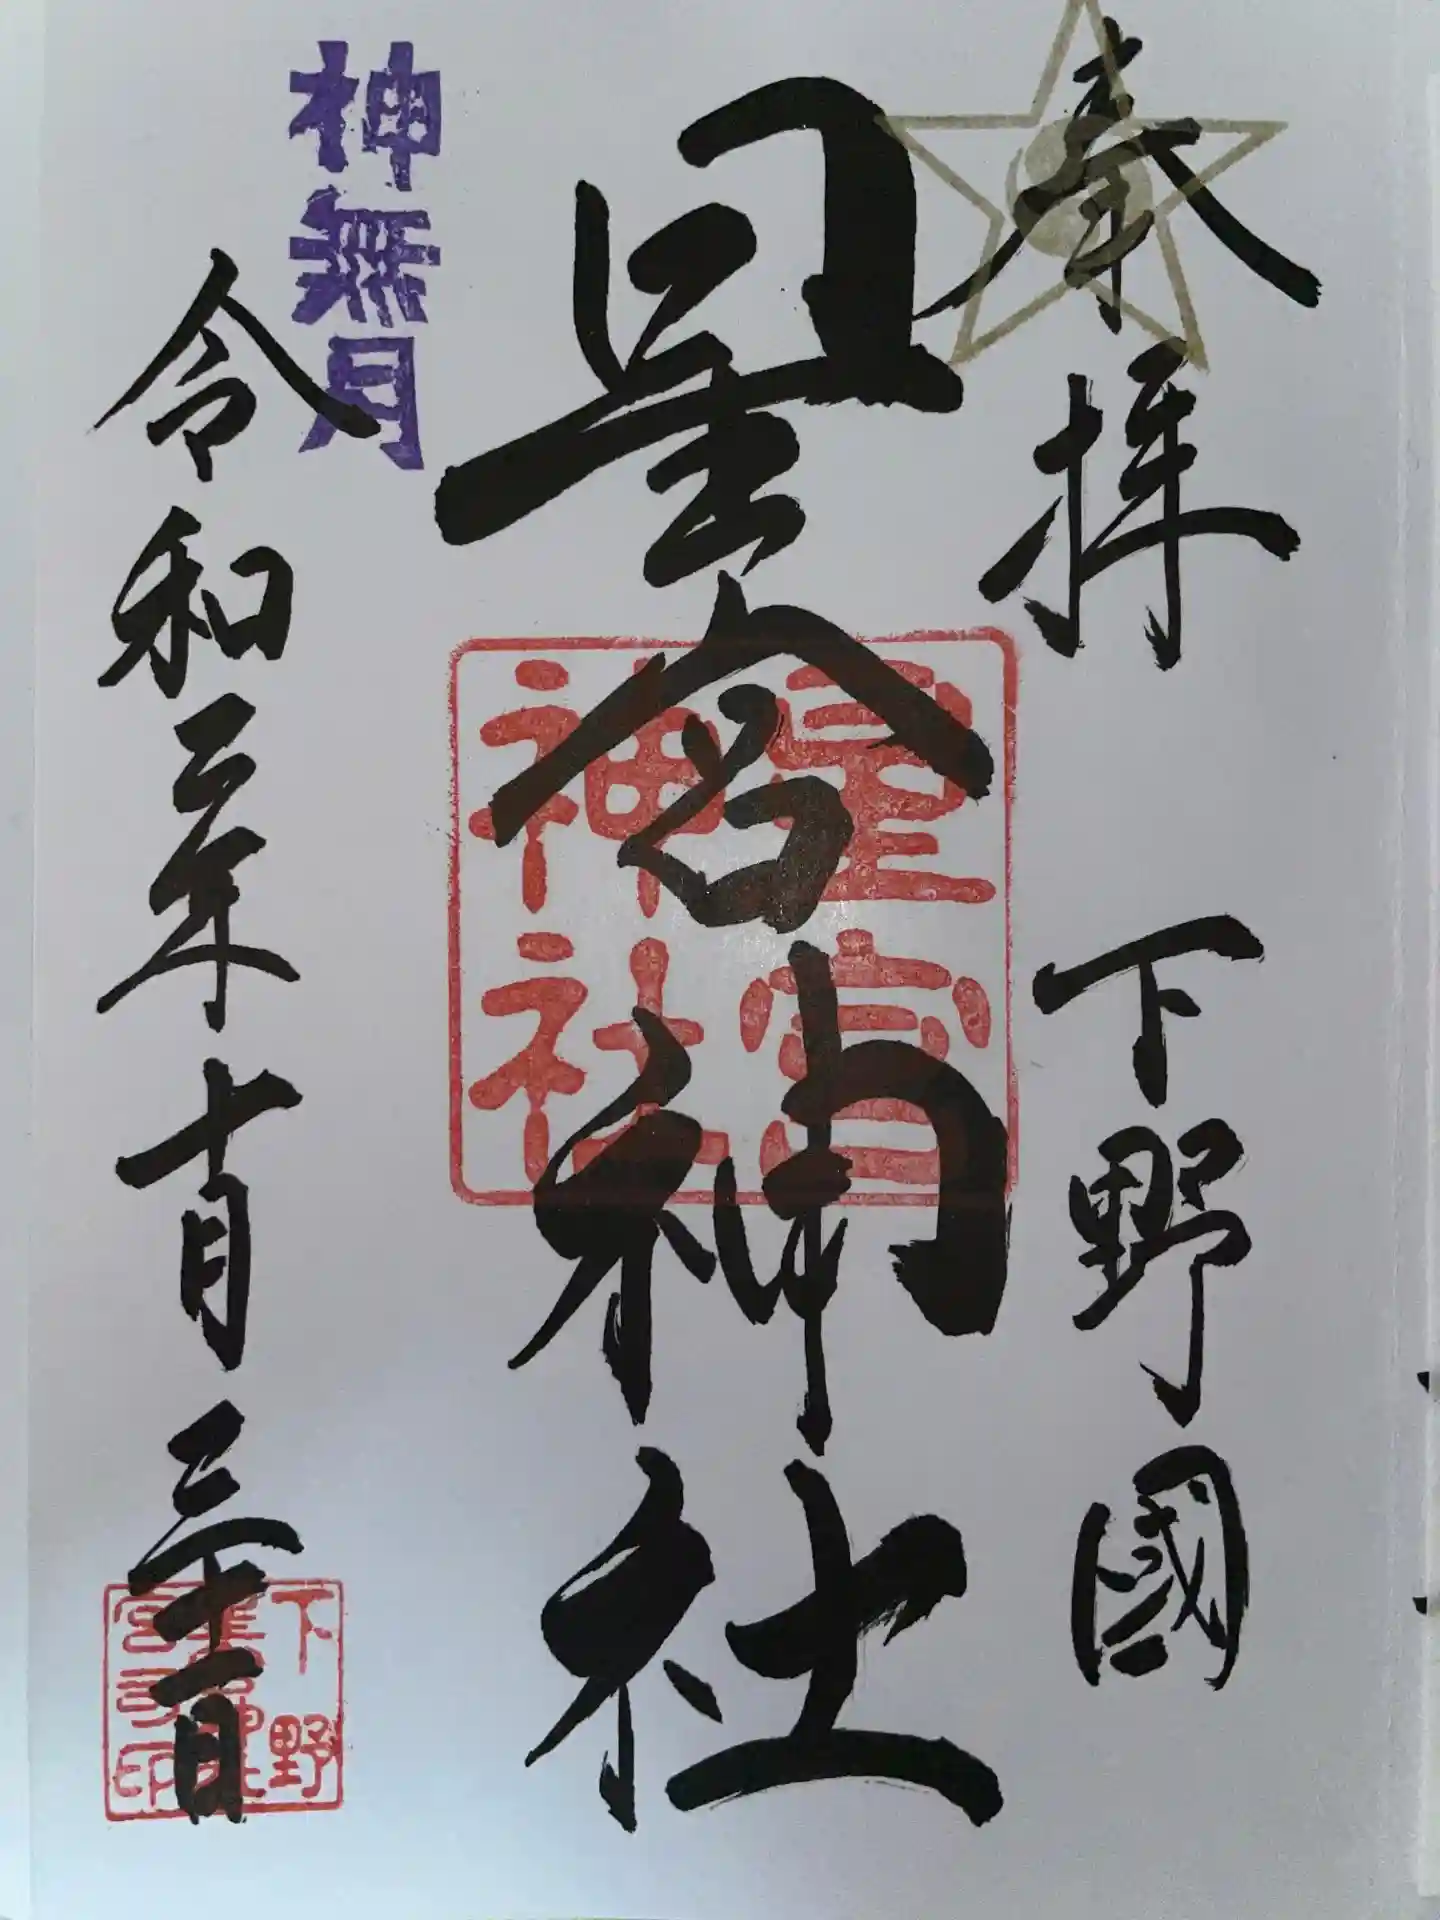 奉拝 下野國
星宮神社
神無月
令和二年十月三十一日
星宮
神社
下野
宮司印